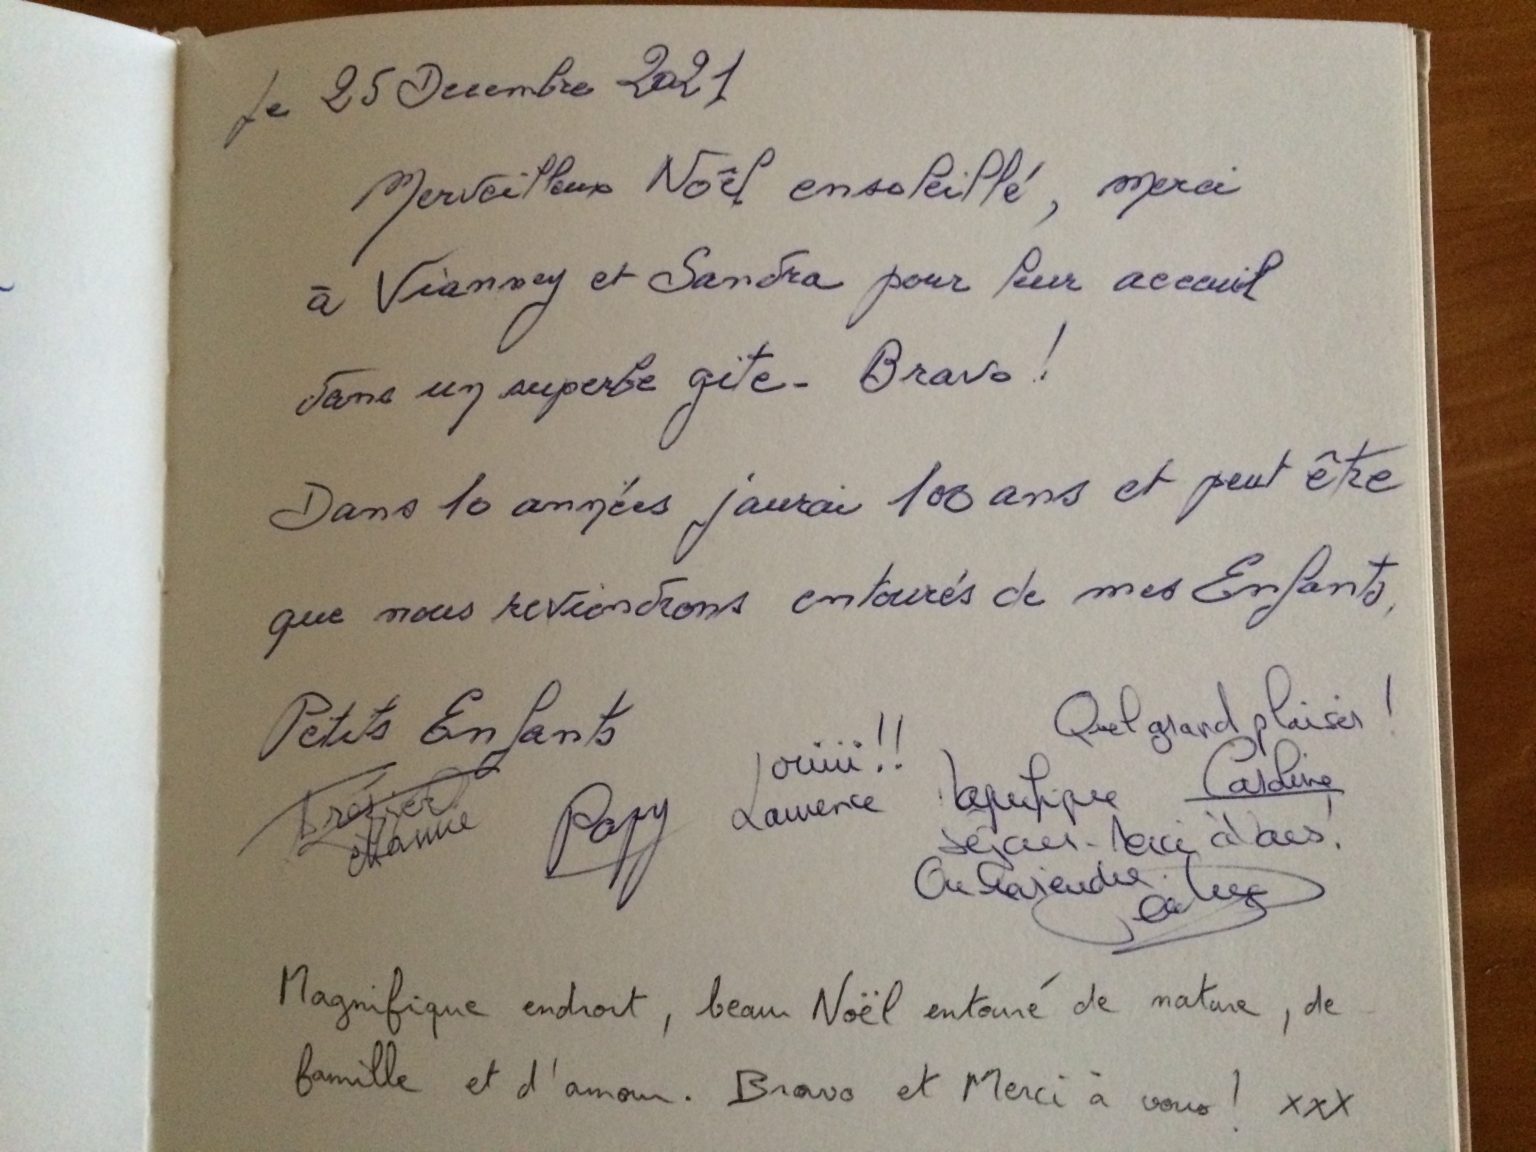 Le 25 Decembre 2021
Merveilleux Noël ensoleillé, merci
à Vianney et Sandra pour leur acceuil
dans un superbe gîte - Bravo !
Dans 10 années j'aurai 100 ans et peut être
que nous reviendrons entourés de mes Enfants,
Petits Enfants
Quel grand plaisir !
ouiiii !!
Laurence
Caroline
Papy
séjour - Merci à vous !
Magnifique endroit, beau Noël entouré de nature, de
famille et d'amour. Bravo et Merci à vous ! xxx